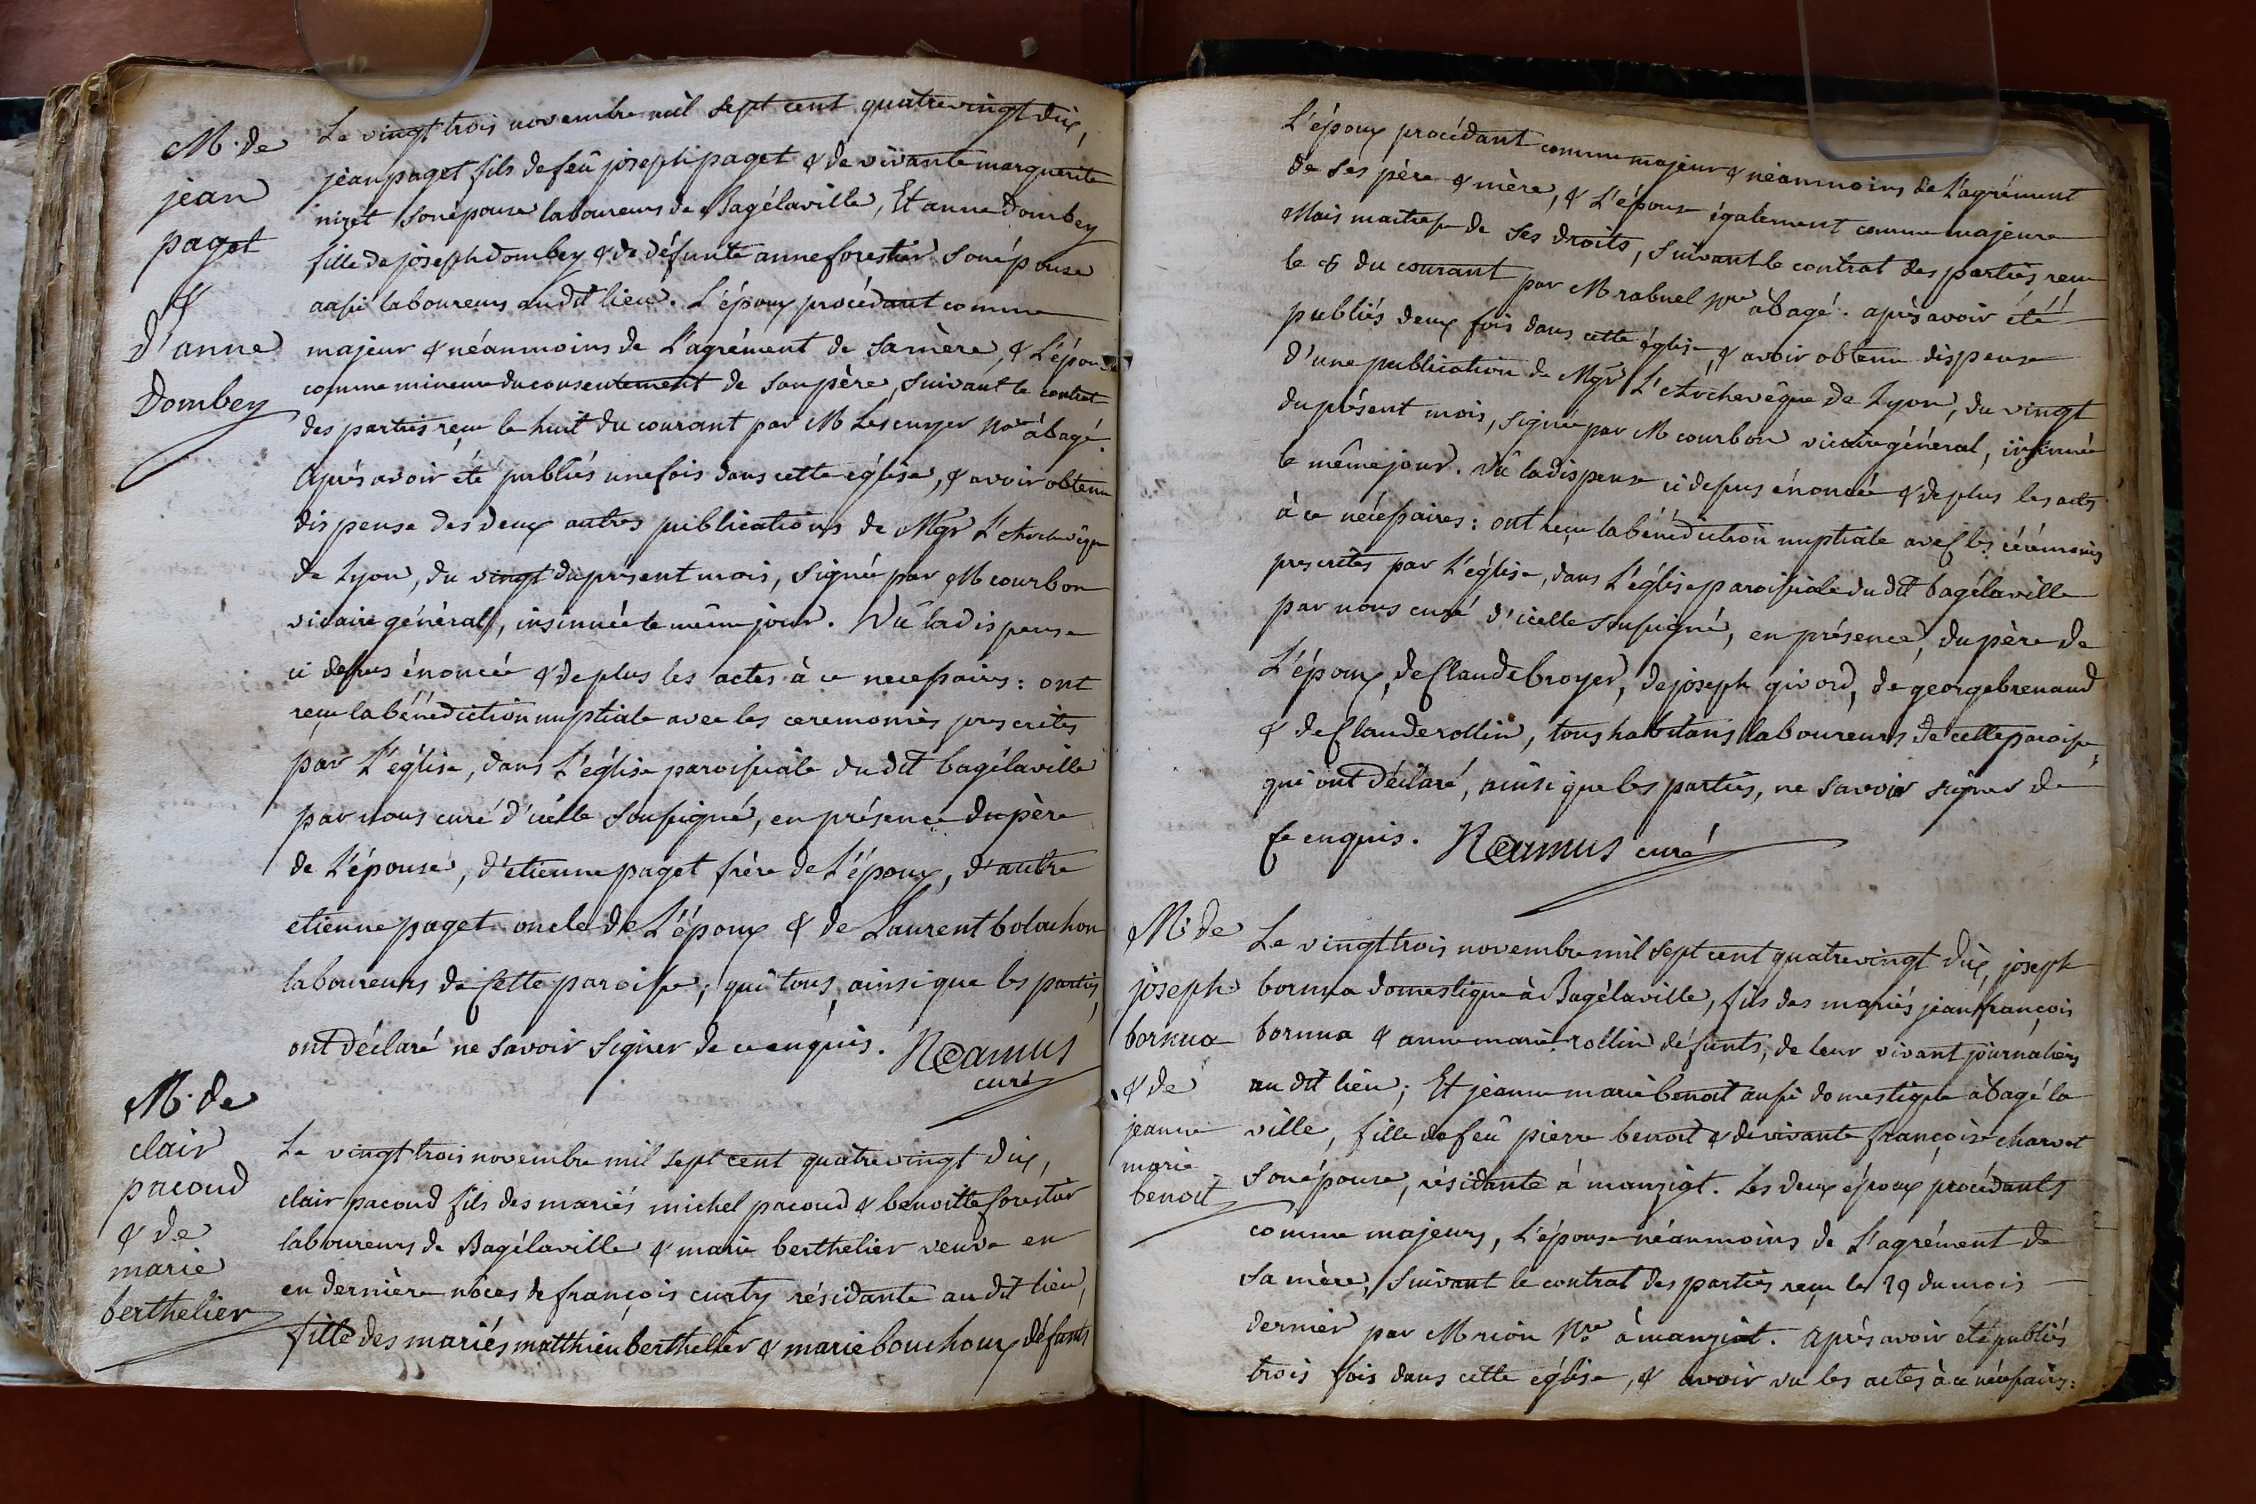 M. de
jean
paget
&
d'anne
Dombey
Le vingt trois novembre mil sept cent quatrevingt dix,
jean paget fils de feû joseph paget & de vivante marguerite
nizet son épouse laboureurs de Bagélaville, Et anne Dombey
fille de joseph dombey & de défunte anne forestier son épouse
aussi laboureurs au dit lieu. L'époux procédant comme
majeur & néanmoins de L'agrément de sa mère, & L'épouse
comme mineure du consentement de son père, suivant le contrat
des parties reçu le huit du courant par M Léscuyer Nre à bagé.
Après avoir été publiés une fois dans cette église, & avoir obtenu
dispense des deux autres publications de Mgr L'Archevêque
de Lyon, du vingt du présent mois, signée par M courbon
vicaire général, insinuée le même jour. Vû la dispense
ci dessus énoncée & de plus les actes à ce necessaires: ont
reçu la bénédiction nuptiale avec les ceremonies prescrites
par L'église, dans L'église paroissiale du dit bagélaville
par nous curé d'icelle soussigné, en présence du père
de L'épouse, d'etienne paget frère de L'époux, d'autre
etienne paget oncle de L'époux & de Laurent bolouhon
laboureurs de cette paroisse; qui tous, ainsi que les parties,
ont déclaré ne savoir signer de ce enquis. Ncamus
curé
M. de
clair
pacoud
& de
marie
berthelier
Le vingt trois novembre mil sept cent quatrevingt dix,
clair pacoud fils des mariés michel pacoud & benoitte forestier
laboureurs de Bagélaville & marie berthelier veuve en
en dernière nôces de françois curty résidante au dit lieu,
fille des mariés matthieu berthelier & marie bouchoux défunts
L'époux procédant comme majeur & néanmoins de L'agrément
de ses père & mère, & L'épouse également comme majeure
Mais maitresse de ses droits, suivant le contrat des parties reçu
le 8 du courant par M rabuel Nre à bagé. après avoir été
publiés deux fois dans cette église, & avoir obtenu dispense
d'une publication de Mgr L'Archevêque de Lyon, du vingt
du présent mois, signée par M courbon vicaire général, insinuée
le même jour. Vû la dispense ci dessus énoncée & de plus les actes
à ce nécessaires: ont reçu la bénédiction nuptiale avec les cérémonies
prescrites par L'église, dans L'église paroissiale du dit bagélaville
par nous curé d'icelle soussigné, en présence, du père de
L'époux, de Claude broyer, de joseph givord, de george brenaud
& de Claude rollin, tous habitans laboureurs de cette paroisse,
qui ont déclaré, ainsi que les parties, ne savoir signer de
ce enquis. Ncamus curé
M. de
joseph
bornua
& de
jeanne
marie
benoit
Le vingt trois novembre mil sept cent quatrevingt dix, joseph
bornua domestique à Bagélaville, fils des mariés jean françois
bornua & anne marie rollin défunts, de leur vivant journaliers
au dit lieu; Et jeanne marie benoit aussi domestique à bagé la
ville, fille de feû pierre benoit & de vivante françoise charvet
son épouse, résidante à manziat. Les deux époux procédants
comme majeurs, L'épouse néanmoins de L'agrément de
sa mère, suivant le contrat des parties reçu le 29 du mois
dernier par M rion Nre à manziat. Après avoir été publiés
trois fois dans cette église, & avoir vu les actes à ce nécessaires: